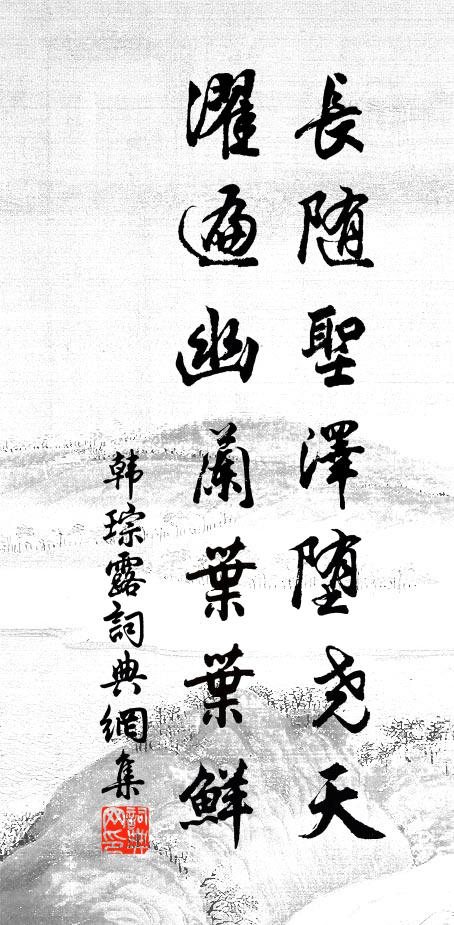 長随聖澤堕尭天
濯遍幽蘭葉葉鮮
韩琮露詞典網集